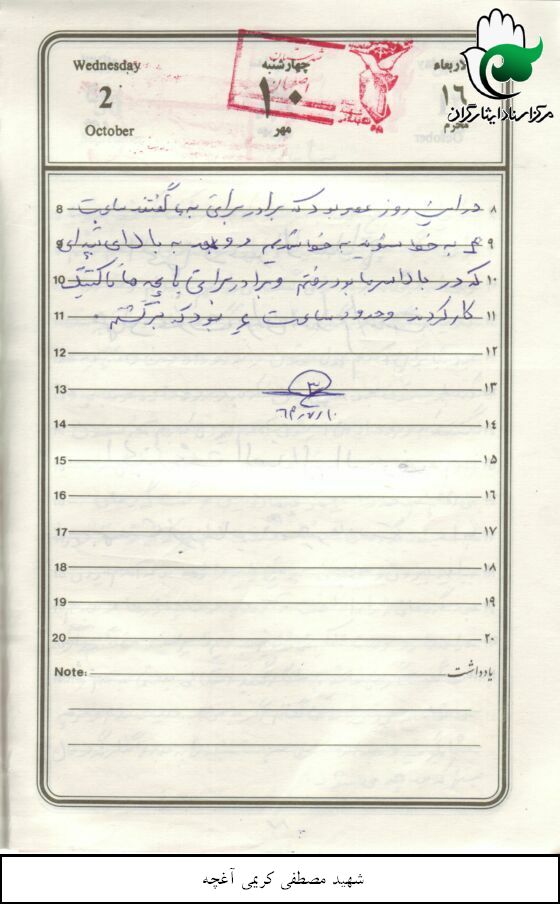 مرکز اسناد ایثارگران
Wednesday چهارشنبه الاربعاء
2 ۱۰ ۱۶
October مهر محرم
8 در این روز عصر بود که برادر براتی به ما گفتند ساعت ۸
9 به خط شوید به خط شدیم و به بالای تپه‌ای ۹
10 که در بالا سر ما بود رفتم و برادر براتی با بچه ها تاکتیک ۱۰
11 کار کردند و حدود ساعت ۶ بود که برگشتم. ۱۱
12 ۱۲
13 ۱۳
۶۴/۷/۱۰
14 ۱۴
15 ۱۵
16 ۱۶
17 ۱۷
18 ۱۸
19 ۱۹
20 ۲۰
Note: یادداشت
شهید مصطفی کریمی آغچه